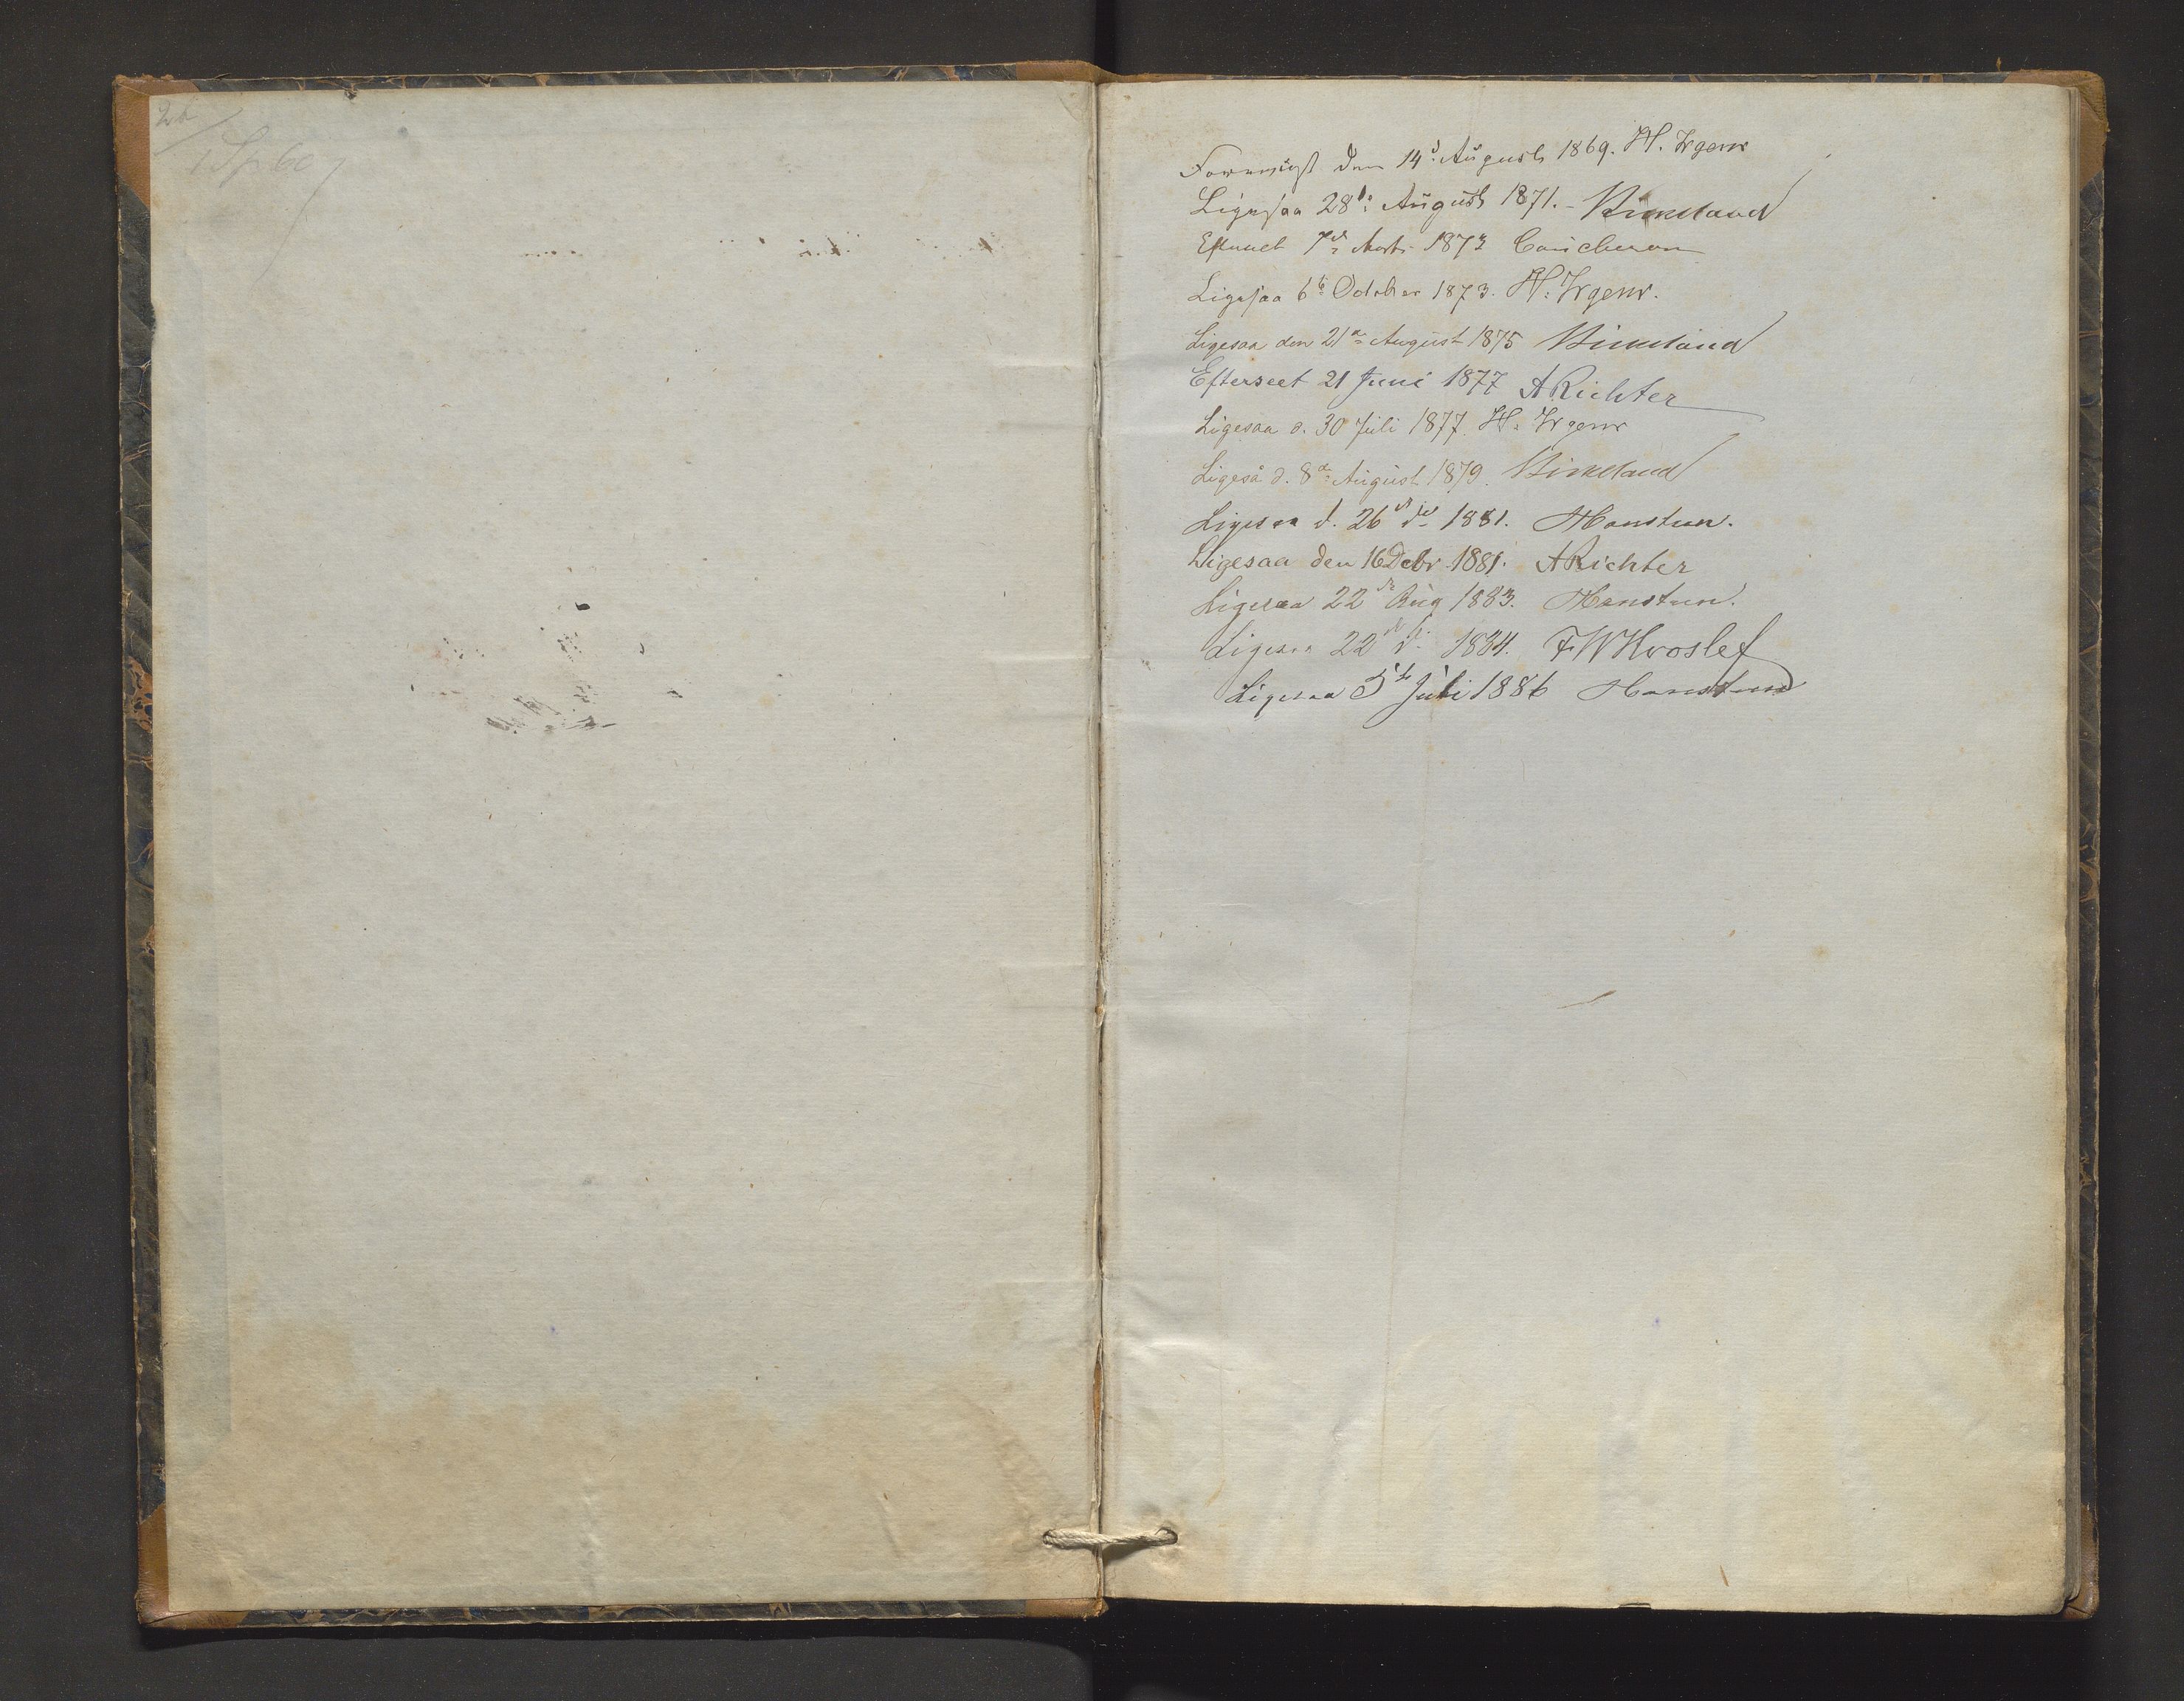 Foreviist den 14d August 1869. H. Irgens
Ligesaa 28de August 1871. - Birkeland
Efterseet 7de Marts 1873 Caucheron
Ligesaa 6te October 1873. H. Irgens.
Ligesaa den 21de August 1875 Birkeland
Efterseet 21 Juni 1877 A Richter
Ligesaa d. 30 Juli 1877. H. Irgens
Ligeså d. 8de August 1879. Birkeland
Ligesaa d. 26de do 1881. Hanstum.
Ligesaa den 16 Debr. 1881. A Richter
Ligesaa 22de Aug 1883. Hanstum.
Ligesaa 22de do 1884. F W Hvoslef
Ligesaa 5te Juli 1886